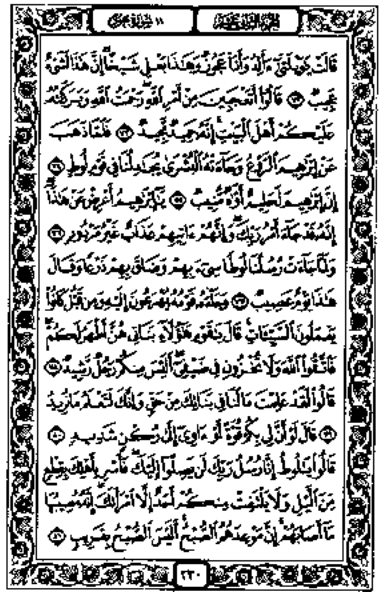 الجزء الثاني عشر
١١ سورة هود
قَالَتْ يَٰوَيْلَتَىٰٓ ءَأَلِدُ وَأَنَا۠ عَجُوزٌ وَهَٰذَا بَعْلِى شَيْخًا إِنَّ هَٰذَا لَشَىْءٌ
عَجِيبٌ ﴿٧٢﴾ قَالُوٓا۟ أَتَعْجَبِينَ مِنْ أَمْرِ ٱللَّهِ رَحْمَتُ ٱللَّهِ وَبَرَكَٰتُهُۥ
عَلَيْكُمْ أَهْلَ ٱلْبَيْتِ إِنَّهُۥ حَمِيدٌ مَّجِيدٌ ﴿٧٣﴾ فَلَمَّا ذَهَبَ
عَنْ إِبْرَٰهِيمَ ٱلرَّوْعُ وَجَآءَتْهُ ٱلْبُشْرَىٰ يُجَٰدِلُنَا فِى قَوْمِ لُوطٍ ﴿٧٤﴾
إِنَّ إِبْرَٰهِيمَ لَحَلِيمٌ أَوَّٰهٌ مُّنِيبٌ ﴿٧٥﴾ يَٰٓإِبْرَٰهِيمُ أَعْرِضْ عَنْ هَٰذَآ
إِنَّهُۥ قَدْ جَآءَ أَمْرُ رَبِّكَ وَإِنَّهُمْ ءَاتِيهِمْ عَذَابٌ غَيْرُ مَرْدُودٍ ﴿٧٦﴾
وَلَمَّا جَآءَتْ رُسُلُنَا لُوطًا سِىٓءَ بِهِمْ وَضَاقَ بِهِمْ ذَرْعًا وَقَالَ
هَٰذَا يَوْمٌ عَصِيبٌ ﴿٧٧﴾ وَجَآءَهُۥ قَوْمُهُۥ يُهْرَعُونَ إِلَيْهِ وَمِن قَبْلُ كَانُوا۟
يَعْمَلُونَ ٱلسَّيِّـَٔاتِ قَالَ يَٰقَوْمِ هَٰٓؤُلَآءِ بَنَاتِى هُنَّ أَطْهَرُ لَكُمْ
فَٱتَّقُوا۟ ٱللَّهَ وَلَا تُخْزُونِ فِى ضَيْفِىٓ أَلَيْسَ مِنكُمْ رَجُلٌ رَّشِيدٌ ﴿٧٨﴾
قَالُوا۟ لَقَدْ عَلِمْتَ مَا لَنَا فِى بَنَاتِكَ مِنْ حَقٍّ وَإِنَّكَ لَتَعْلَمُ مَا نُرِيدُ
﴿٧٩﴾ قَالَ لَوْ أَنَّ لِى بِكُمْ قُوَّةً أَوْ ءَاوِىٓ إِلَىٰ رُكْنٍ شَدِيدٍ ﴿٨٠﴾
قَالُوا۟ يَٰلُوطُ إِنَّا رُسُلُ رَبِّكَ لَن يَصِلُوٓا۟ إِلَيْكَ فَأَسْرِ بِأَهْلِكَ بِقِطْعٍ
مِّنَ ٱلَّيْلِ وَلَا يَلْتَفِتْ مِنكُمْ أَحَدٌ إِلَّا ٱمْرَأَتَكَ إِنَّهُۥ مُصِيبُهَا
مَآ أَصَابَهُمْ إِنَّ مَوْعِدَهُمُ ٱلصُّبْحُ أَلَيْسَ ٱلصُّبْحُ بِقَرِيبٍ ﴿٨١﴾
٢٣٠